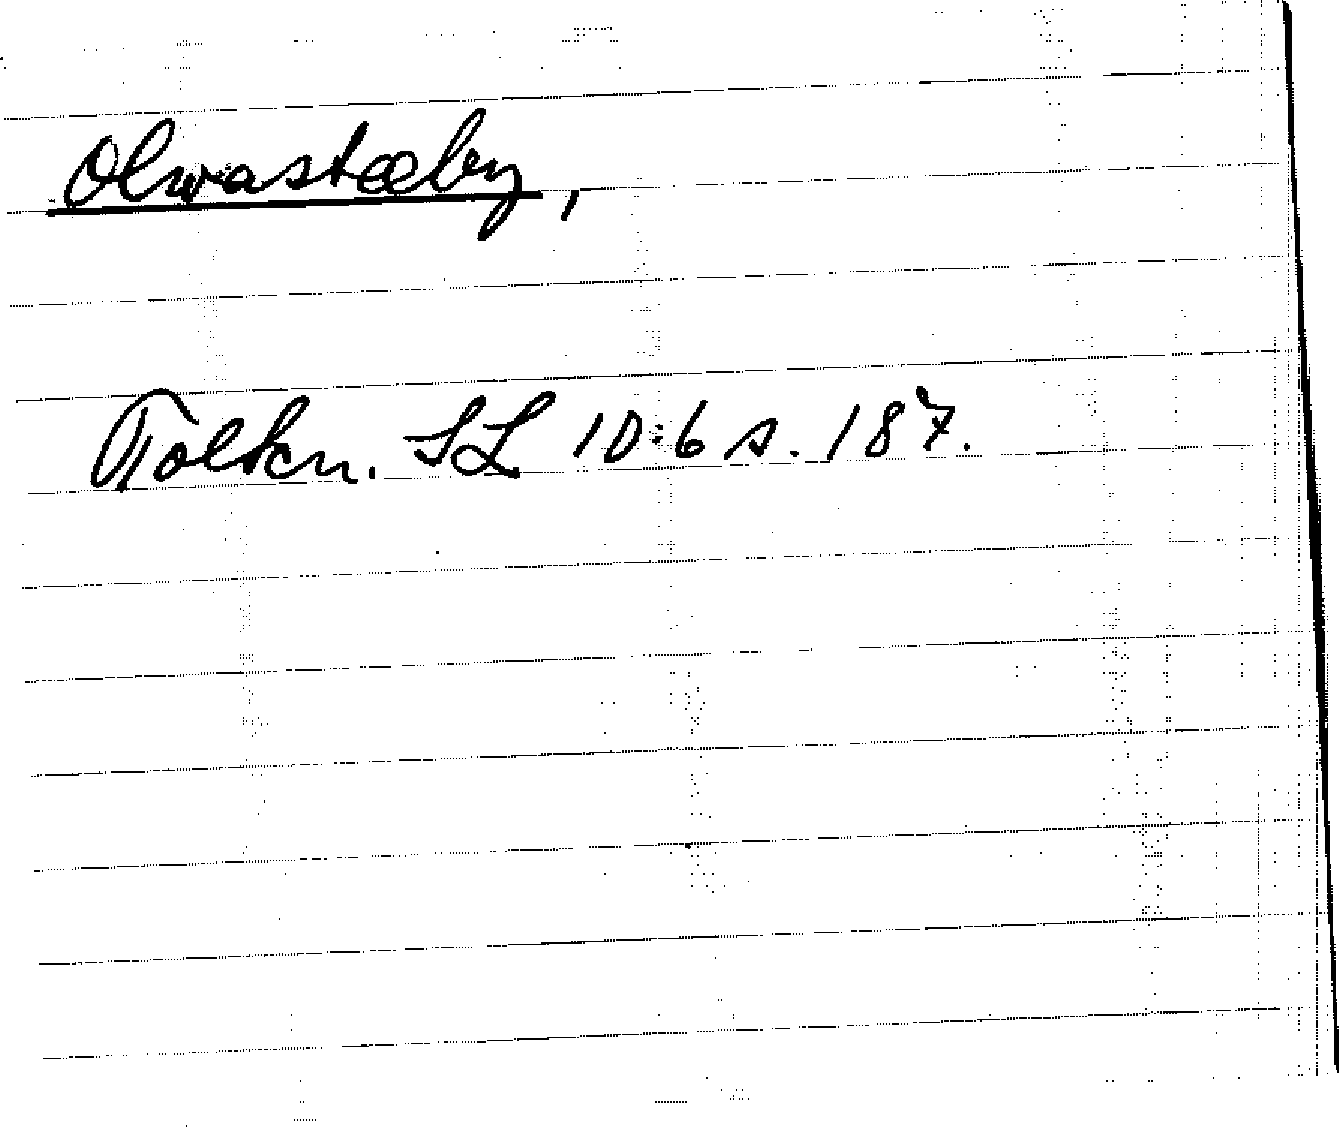 Olwastæby,
Tolkn. SL 10:6 s. 187.